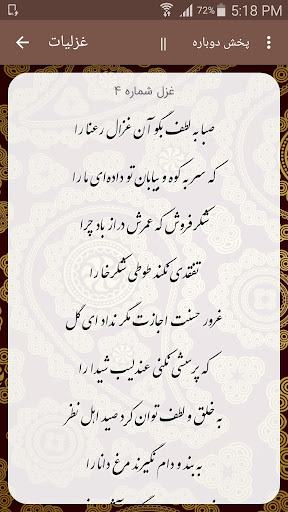 72% 5:18 PM
غزلیات || پخش دوباره
غزل شماره ۴
صبا به لطف بگو آن غزال رعنا را
که سر به کوه و بیابان تو داده‌ای ما را
شکرفروش که عمرش دراز باد چرا
تفقدی نکند طوطی شکرخا را
غرور حسنت اجازت مگر نداد ای گل
که پرسشی نکنی عندلیب شیدا را
به خلق و لطف توان کرد صید اهل نظر
به بند و دام نگیرند مرغ دانا را